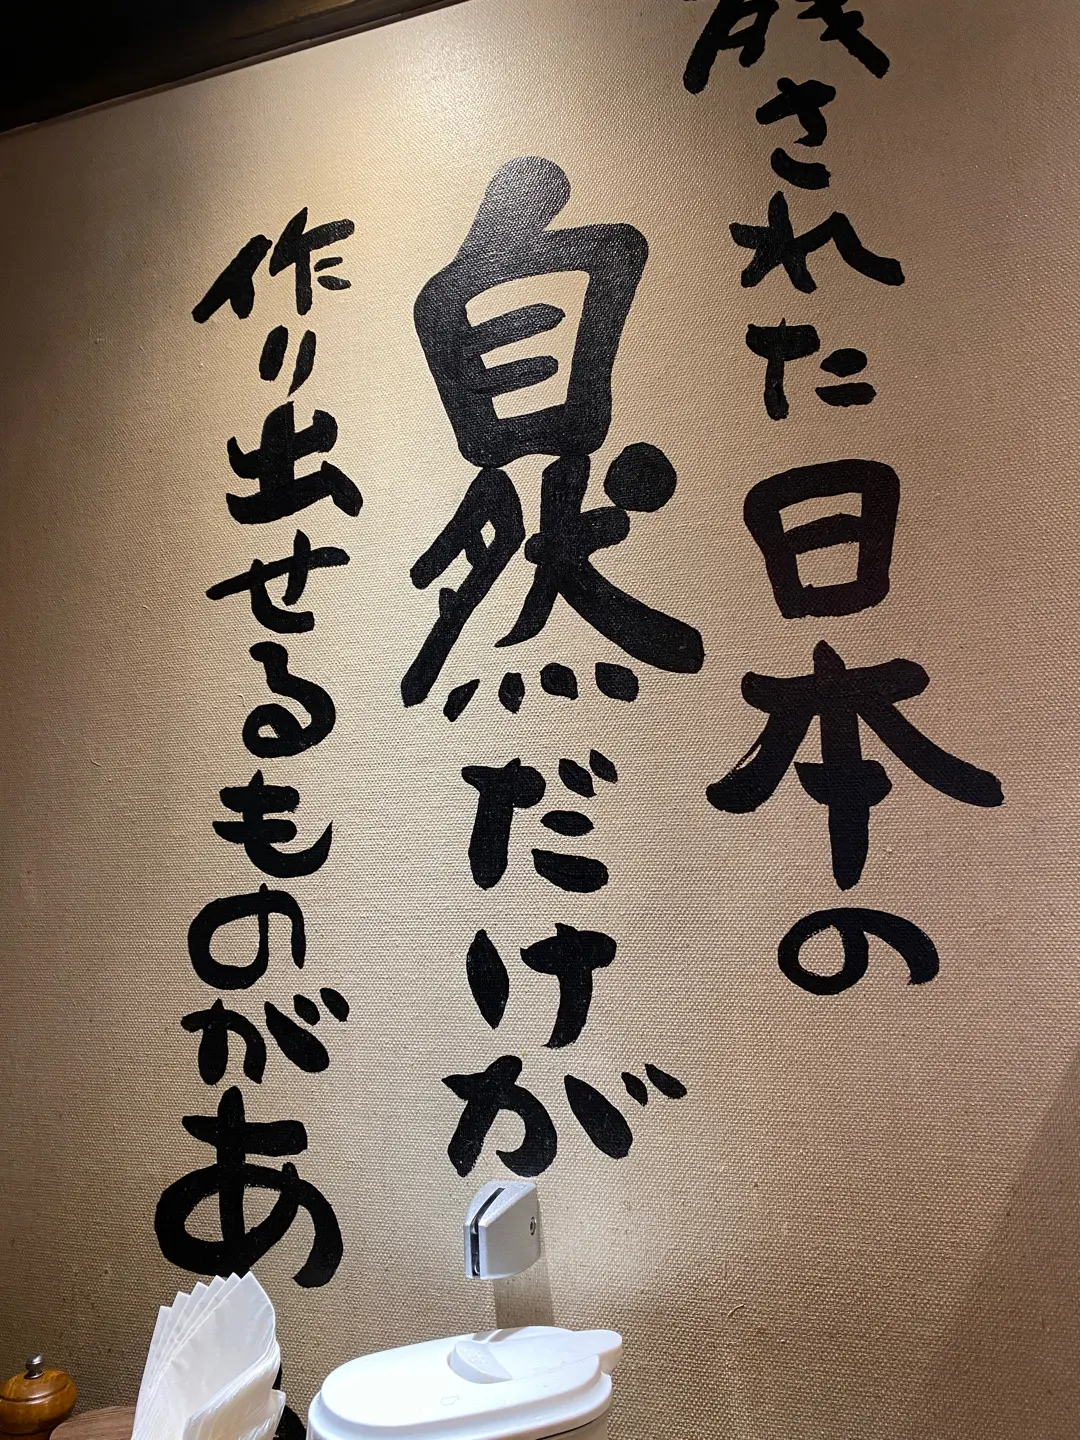 残された日本の
自然だけが
作り出せるものがあ